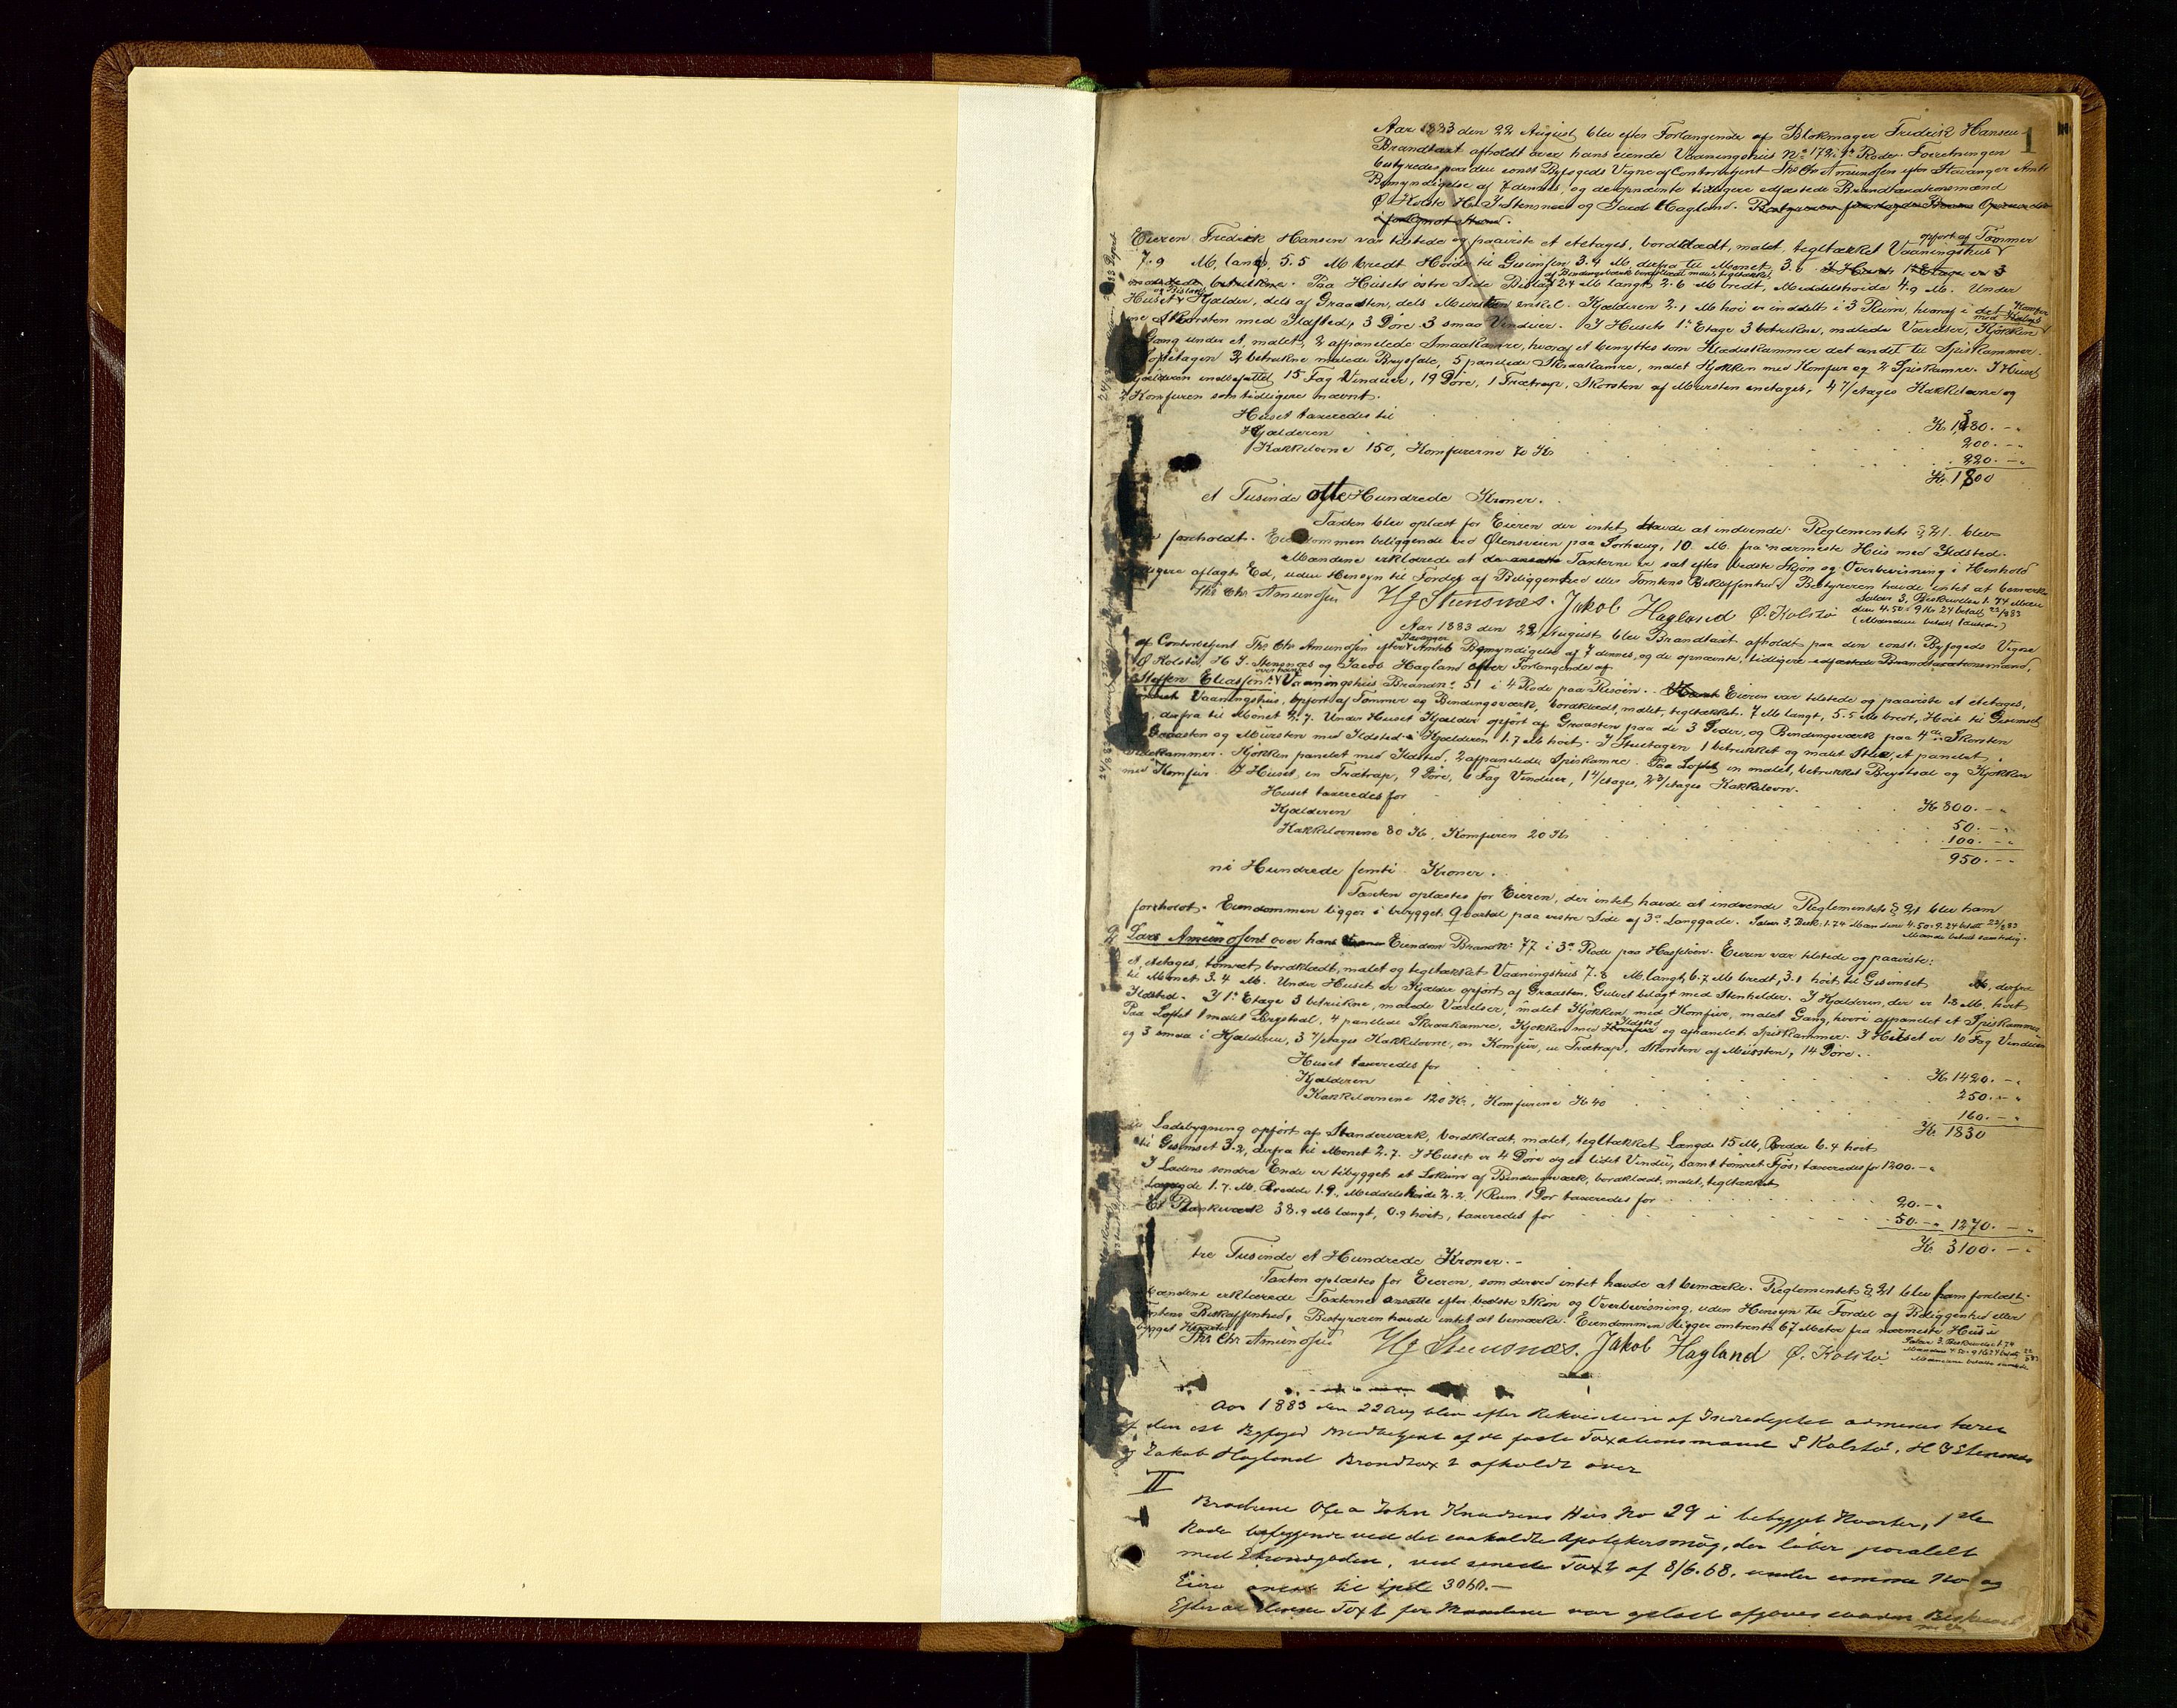 1
Aar 1883 den 22 August blev efter Forlangende af Blokmager Fredrik Hansen
Brandtaxt afholdt over hans eiende Vaaningshus No 172 i 4a Rode. Forretningen
bestyredes paa den const. Byfogeds Vegne af Contorbetjent Ths Chr Amundsen efter Stavanger Amts
Bemyndigelse af 7 dennes, og de opnævnte tidligere edfæstede Brandtaxationsmænd
Ø Kolstø H. J. Stensnæs og Jacob Hagland.
Eieren Fredrik Hansen var tilstede og paaviste et etetages, bordklædt, malet, tegltækket Vaaningshus opført af Tømmer
7.9 M. langt, 5.5 M bredt Høide til Gesimsen 3.9 M. derfra til Mønet 3.6
betrukne. Paa Husets østre Side Bislag 2.4 M langt, 2.6 M bredt, Middelshøide 4.9 M. Under
Huset og Bislag Kjælder, dels af Graasten, dels Mursten enkel. Kjælderen 2.1 M høi er inddelt i 3 Rum, hvoraf i det
ene Skorsten med Ildsted, 3 Døre 3 smaa Vinduer. I Husets 1e Etage 3 betrukne, malede Værelser, Kjøkken med Komfur
Gang under et, malet, 2 afpanelede Smaakamre, hvoraf et benyttes som Klædeskammer det andet til Spiskammer.
Loftetagen 2 betrukne malede Brystsale, 5 panelede Skraakamre, malet Kjøkken med Komfur og 2 Spiskamre. I Huset
Kjælderen indbefattet 15 Fag Vinduer, 19 Døre, 1 Trætrap, Skorsten af Mursten enetages, 4 Etages Kakkelovne og
2 Komfuren som tidligere nævnt.
Huset taxeredes til Kr. 1380. -
Kjælderen 200. -
Kakkelovne 150, Komfurerne 70 Kr 220. -
Kr. 1800
et Tusinde otte Hundrede Kroner.
Taxten blev oplæst for Eieren der intet havde at indvende. Reglementets § 21. blev
foreholdt. Eiendommen beliggende ved Ølensveien paa Sørhaug, 10 M. fra nærmeste Hus med Ildsted.
Mændene erklærede at Taxterne er sat efter bedste Skjøn og Overbevisning i Henhold
aflagt Ed, uden Hensyn til Fordel af Beliggenhed eller Tomtens Beskaffenhed. Bestyreren havde intet at bemærke
Ths Chr. Amundsen HJ Stensnæs. Jakob Hagland Ø. Kolstø
Salær 3, Beskrivelse 1. 74 Mæn
dene 4.50 = 9 Kr 24 betalt 22/8 83
Aar 1883 den 22 August blev Brandtaxt afholdt paa den const. Byfogeds Vegne
af Contorbetjent Ths Chr Amundsen efter Stavanger Amts Bemyndigelse af 7 dennes, og de opnævnte, tidligere edfæstede Brandtaxationsmænd,
Ø Kolstø, H. J. Stensnæs og Jacob Hagland efter Forlangende af
Steffen Eliassen over hans Vaaningshus Brandno 51 i 4 Rode paa Risøen. Eieren var tilstede og paaviste et etetages,
Vaaningshus, opført af Tømmer og Bindingsværk, bordklædt, malet, tegltækket. 7 M langt, 5.5 M bredt, Høit til Gesimset
, derfra til Mønet 2.7. Under Huset Kjælder opført af Graasten paa de 3 Sider, og Bindingsværk paa 4de Skorsten
Graasten og Mursten med Ildsted. Kjælderen 1.7 M høit. I Stuetagen 1 betrukket og malet Stue, et panelet
Sidekammer. Kjøkken panelet med Ildsted, 2 afpanelede Spiskamre. Paa Loftet en malet, betrukket Brystsal og Kjøkken
med Komfur. I Huset en Trætrap, 9 Døre, 6 Fag Vinduer, 1 4/etages, 2 3/etages Kakkelovn.
Huset taxeredes for Kr 800. -
Kjælderen 50. -
Kakkelovnene 80 Kr, Komfuren 20 Kr 100. -
950. -
ni Hundrede femti Kroner.
Taxten oplæstes for Eieren, der intet havde at indvende Reglementets § 21 blev ham
foreholdt. Eiendommen ligger i bebygget Qvartal paa vestre Side af 3a Langgade. Salær 3, Besk. 1.74 Mændene 4.50 = 9.24 betalt 22/8 83
Lars Amundsens over hans Eiendom Brandno 77 i 3a Rode paa Hasseløen. Eieren var tilstede og paaviste:
et etetages, tømret, bordklædt, malet og tegltækket Vaaningshus 7.8 M. langt, 6.7 M bredt, 3.1 høit til Gesimset, derfra
til Mønet 3.4 M. Under Huset er Kjælder opført af Graasten. Gulvet belagt med Stenheller. I Kjælderen, der er 1.8 M. høit
Ildsted. I 1e Etage 3 betrukne, malede Værelser, malet Kjøkken med Komfur, malet Gang, hvori afpanelet et Spiskammer
Paa Loftet 1 malet Brystsal, 4 panelede Skraakamre, Kjøkken med Ildsted og afpanelet Spiskammer. I Huset er 10 Fag Vinduer
og 3 smaa i Kjælderen, 3 4/etages Kakkelovne, en Komfur, en Trætrap, Skorsten af Mursten, 14 Døre.
Huset taxeredes for Kr 1420. -
Kjælderen 250. -
Kakkelovnene 120 Kr., Komfurene Kr 40 160. -
Kr. 1830
Ladebygning opført af Standerværk, bordklædt, malet, tegltækket Længde 15 M, Bredde 6.4 høit
til Gesimset 3.2, derfra til Mønet 2.7. I Huset er 4 Døre og et lidet Vindu, samt tømret Fjøs, taxeredes for 1200. -
I Ladens søndre Ende er tilbygget et Lokum af Bindingsværk, bordklædt, malet, tegltækket
Længde 1.7. M. Bredde 1.9, Middelshøide 2.2. 1 Rum 1 Dør taxeredes for 20. -
Et Plankeværk 38.9 M langt, 0.9 høit, taxeredes for 50. - 1270. -
Kr 3100. -
tre Tusinde et Hundrede Kroner. -
Taxten oplæstes for Eieren, som derved intet havde at bemærke. Reglementets § 21 blev ham foreholdt.
Mændene erklærede Taxterne ansatte efter bedste Skjøn og Overbevisning, uden Hensyn til Fordel af Beliggenhed eller
Tomtens Beskaffenhed, Bestyreren havde intet at bemærke. Eiendommen ligger omtrent 67 Meter fra nærmeste Hus i
bygget Kvarter
Ths Chr Amundsen HJ Stensnæs. Jakob Hagland Ø. Kolstø
Aar 1883 den 22 Aug blev efter Rekvisition af
af den cst Byfoged af de faste Taxationsmænd Ø Kolstø, H J Stensnæs
og Jakob Hagland Brandtaxt afholdt over
II
Brødrene Ole a John Knudsens Hus No 29 i bebygget Kvarter, 1ste
Rode beliggende ved det saakaldte Apothekersmøg, der løber paralelt
med Strandgaden, ved seneste Taxt af 8/6.68, under samme No og
Eiere ansat til Spd 3060. -
Efter at denne Taxt for Mændene var oplæst afgaves saadan Beskrivelse